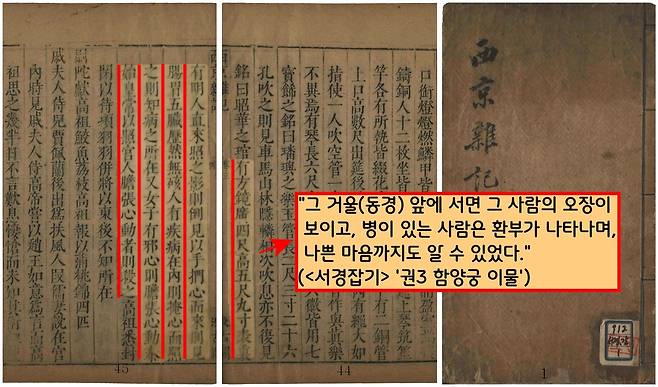 戶銜燈燈燃鱗甲皆
鑄銅人十二枚坐皆
竽各有所執皆綴花
上口高數尺出筵
指使一人吹空管一
不異焉有琴長六尺
寶飾之銘曰璠璵之樂玉管長二尺三寸二十六
孔吹之則見車馬山林隱轔相次吹息亦不復見
銘曰昭華之琯有方鏡廣四尺高五尺九寸表裏
44
西京雜記
有明人直來照之影則倒見以手捫心而來則見
腸胃五臟歷然無硋人有疾病在內則掩心而照
之則知病之所在又女子有邪心則膽張心動秦
始皇常以照宮人膽張心動者則殺之高祖悉封
閉以待項羽羽併將以東後不知所在
尉佗獻高祖鮫魚荔枝高祖報以蒲桃錦四匹
戚夫人侍兒賈佩蘭後出為扶風人段儒妻說在宮
內時見戚夫人侍高帝嘗以趙王如意為言而高
祖思之幾半日不言歎息悽愴而未知其
45
西京雜記
912
1
"그 거울(동경) 앞에 서면 그 사람의 오장이
보이고, 병이 있는 사람은 환부가 나타나며,
나쁜 마음까지도 알 수 있었다."
(<서경잡기> '권3 함양궁 이물')